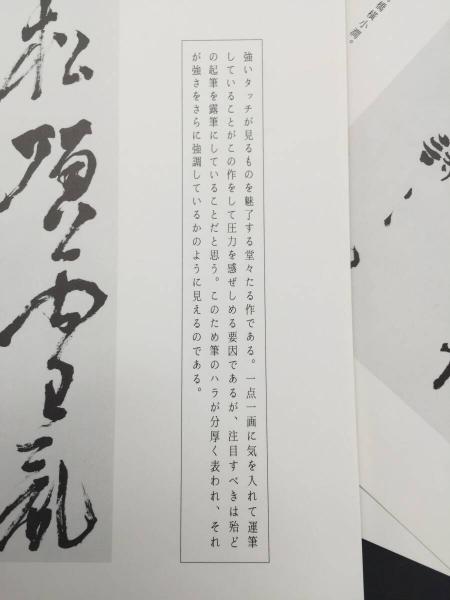 橋横小澗。
強いタッチが見るものを魅了する堂々たる作である。一点一画に気を入れて運筆
していることがこの作をして圧力を感ぜしめる要因であるが、注目すべきは殆ど
の起筆を露筆にしていることだと思う。このため筆のハラが分厚く表われ、それ
が強さをさらに強調しているかのように見えるのである。
松頂雪亂